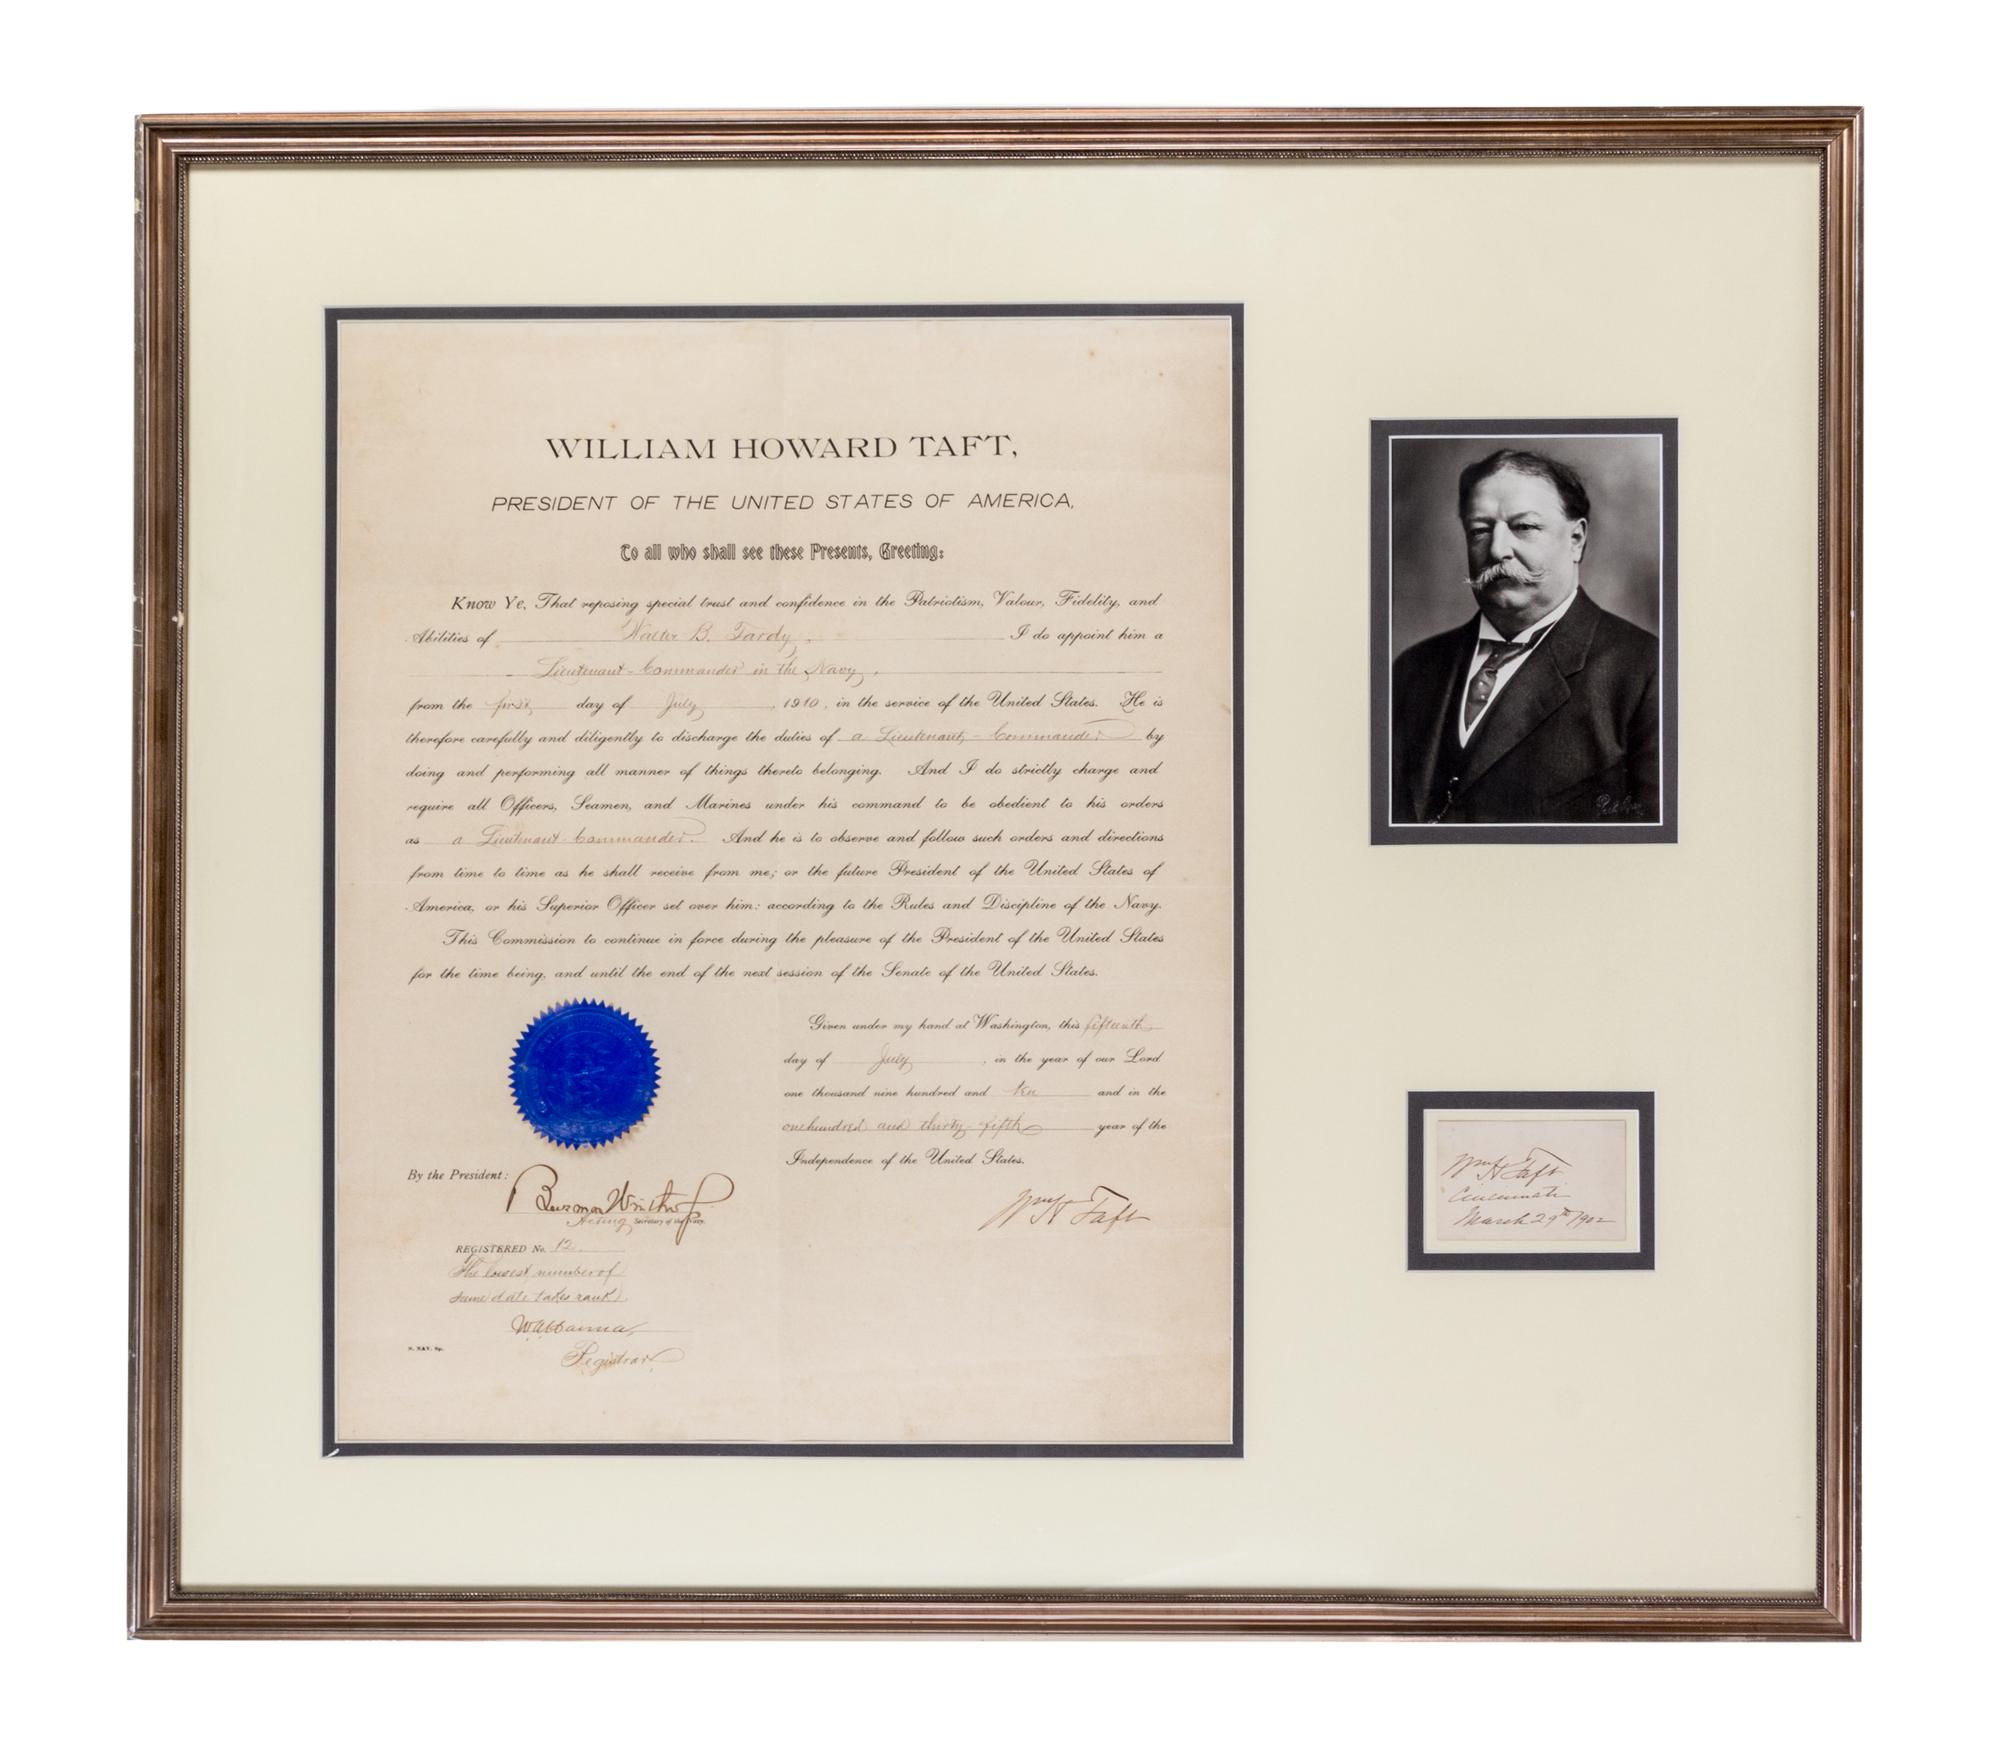 WILLIAM HOWARD TAFT,
PRESIDENT OF THE UNITED STATES OF AMERICA,
To all who shall see these Presents, Greeting:
Know Ye, That reposing special trust and confidence in the Patriotism, Valour, Fidelity, and
Abilities of Walter B. Tardy, I do appoint him a
Lieutenant-Commander in the Navy,
from the first day of July, 1910, in the service of the United States. He is
therefore carefully and diligently to discharge the duties of a Lieutenant-Commander by
doing and performing all manner of things thereto belonging. And I do strictly charge and
require all Officers, Seamen, and Marines under his command to be obedient to his orders
as a Lieutenant-Commander. And he is to observe and follow such orders and directions
from time to time as he shall receive from me; or the future President of the United States of
America, or his Superior Officer set over him: according to the Rules and Discipline of the Navy.
This Commission to continue in force during the pleasure of the President of the United States
for the time being, and until the end of the next session of the Senate of the United States.
Given under my hand at Washington, this fifteenth
day of July, in the year of our Lord
one thousand nine hundred and ten and in the
one hundred and thirty-fifth year of the
Independence of the United States.
By the President:
Beekman Winthrop
Acting Secretary of the Navy.
Wm H Taft
REGISTERED No. 12.
The lowest number of
same date takes rank.
Registrar.
N. NAV. Sp.
Wm H Taft
Cincinnati
March 29th 1902